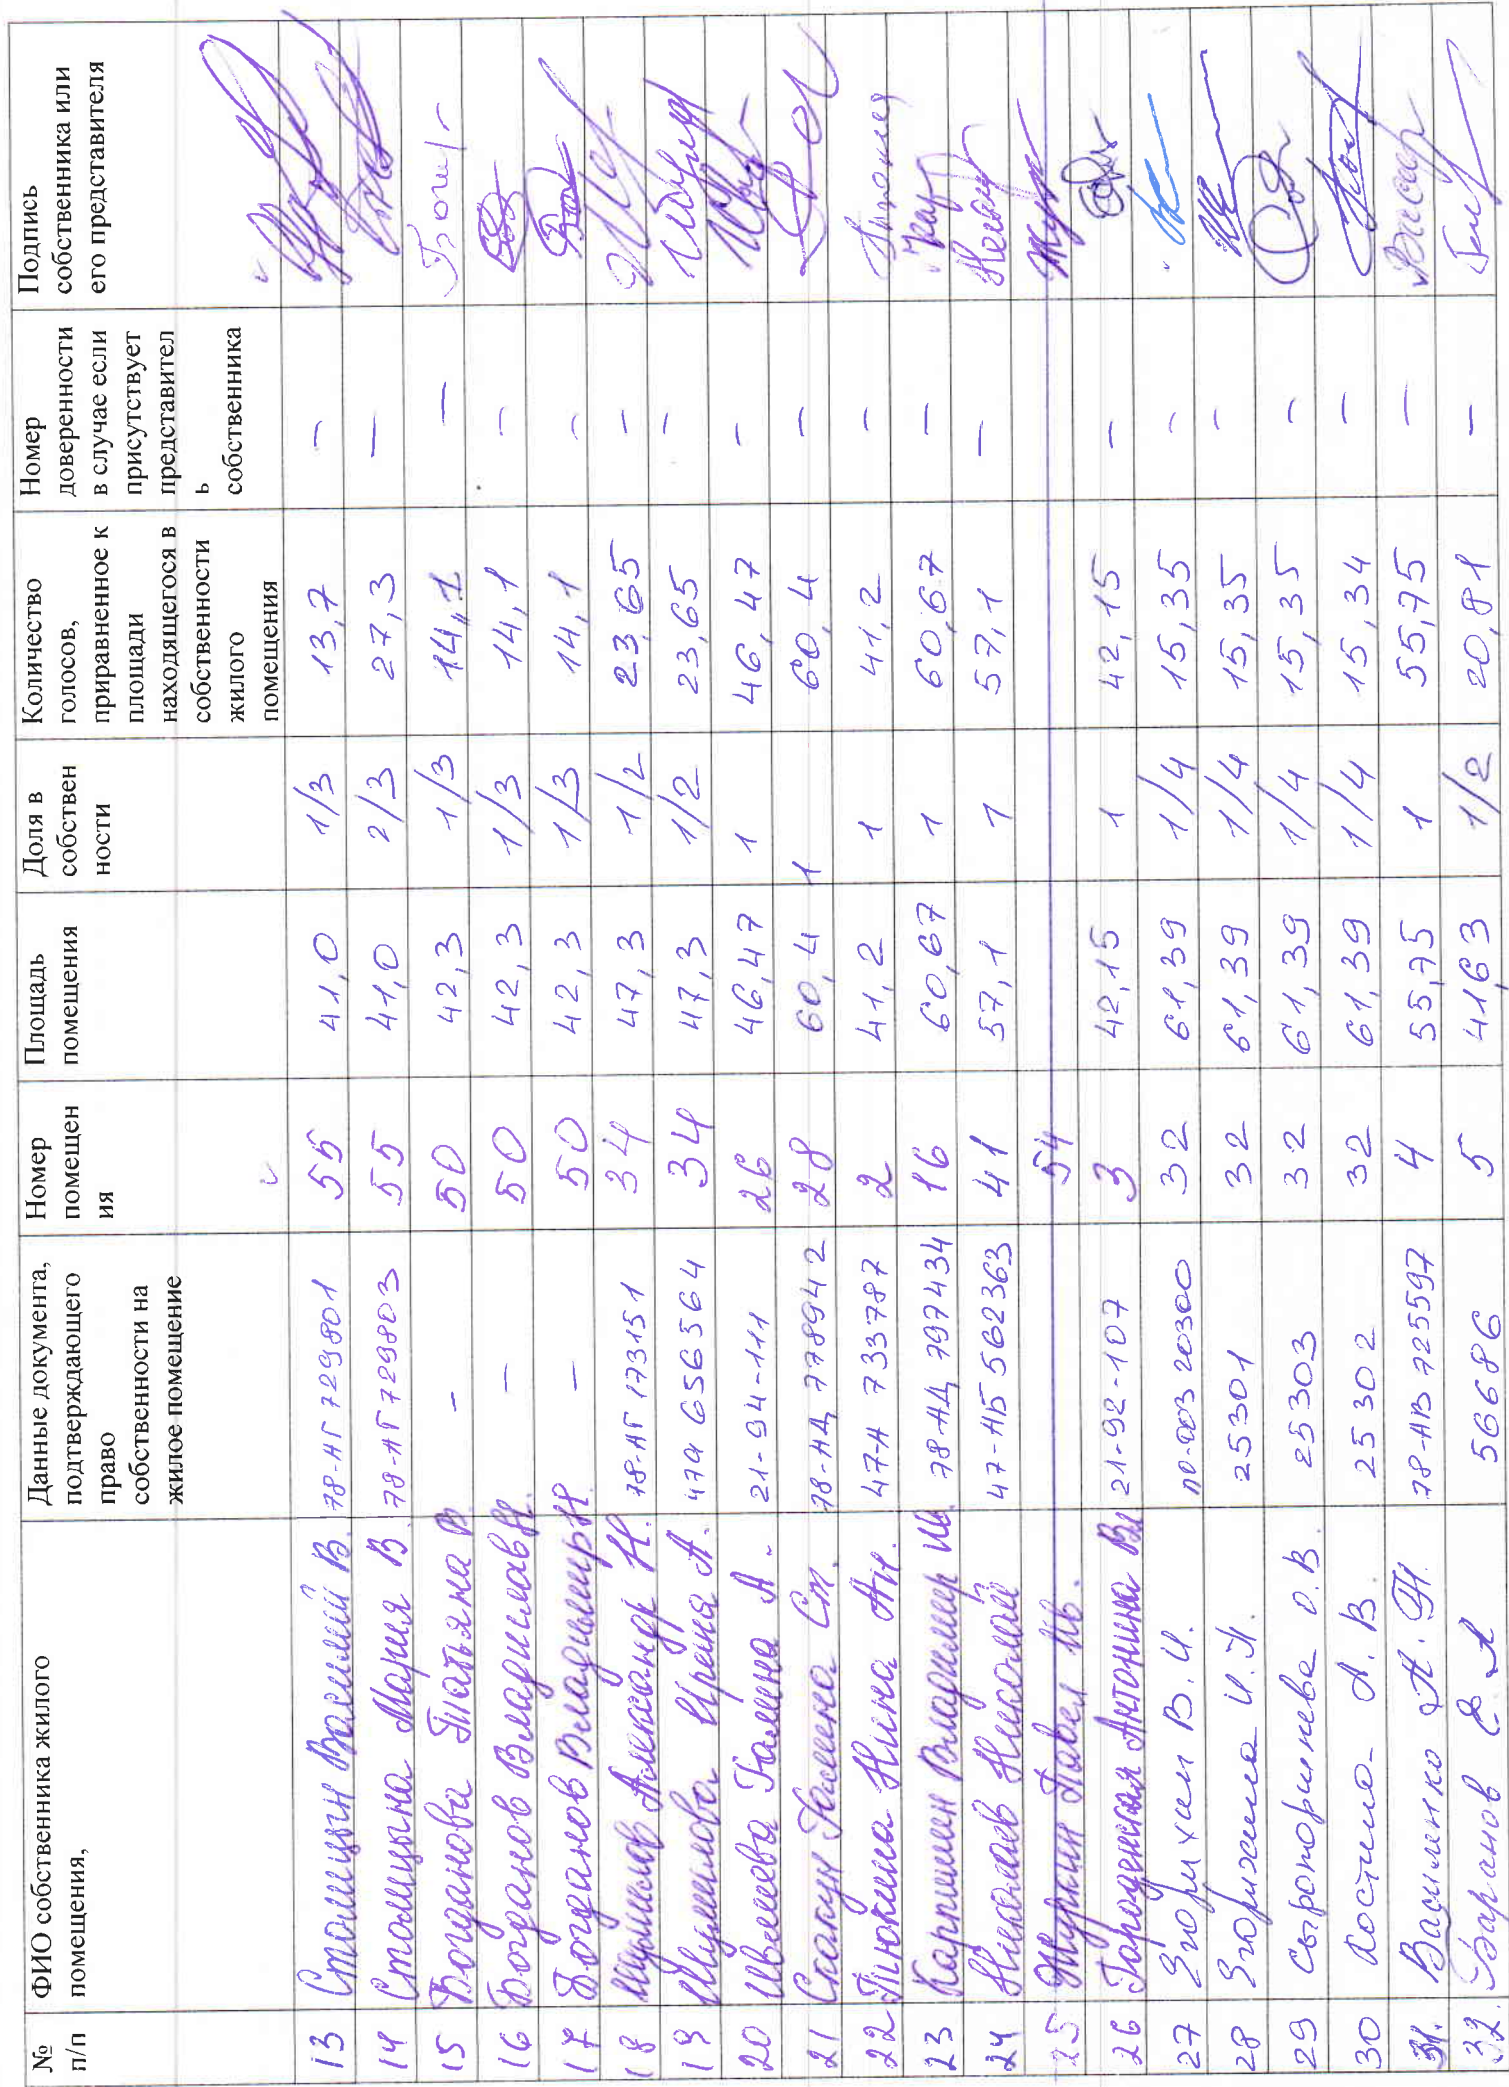 № п/п
ФИО собственника жилого помещения,
Данные документа, подтверждающего право собственности на жилое помещение
Номер помещен ия
Площадь помещения
Доля в собствен ности
Количество голосов, приравненное к площади находящегося в собственности жилого помещения
Номер доверенности в случае если присутствует представител ь собственника
Подпись собственника или его представителя
13 Столицын Василий В. 78-АГ 729801 55 41,0 1/3 13,7 –
14 Столицына Мария В. 78-АГ 729803 55 41,0 2/3 27,3 –
15 Богданова Татьяна В. – 50 42,3 1/3 14,1 –
16 Богданов Владислав Н. – 50 42,3 1/3 14,1 –
17 Богданов Владимир Н. – 50 42,3 1/3 14,1 –
18 Шумилов Александр Н. 78-АГ 173151 34 47,3 1/2 23,65 –
19 Шумилова Ирина А. 656564 34 47,3 1/2 23,65 –
20 Галина А. 21-94-111 26 46,47 1 46,47 –
21 Скакун Галина Ст. 78-АД 778942 28 60,4 1 60,4 –
22 Тюкина Нина Ан. 47-А 733787 2 41,2 1 41,2 –
23 Карпишин Владимир 78-АД 797434 16 60,67 1 60,67 –
24 Николаев Николай 47-АБ 562363 41 57,1 1 57,1 –
25 Журкин Павел Ив. 54
26 Городенская Антонина Вл 21-92-107 3 42,15 1 42,15 –
27 Егорихин В.И. 20300 32 61,39 1/4 15,35 –
28 Егорихина И.Н. 25301 32 61,39 1/4 15,35 –
29 Сыропоршнева О.В. 25303 32 61,39 1/4 15,35 –
30 Костина А.В. 25302 32 61,39 1/4 15,34 –
31. Василенко А. 78-АВ 725597 4 55,75 1 55,75 –
32. Баранов 56686 5 41,63 1/2 20,81 –